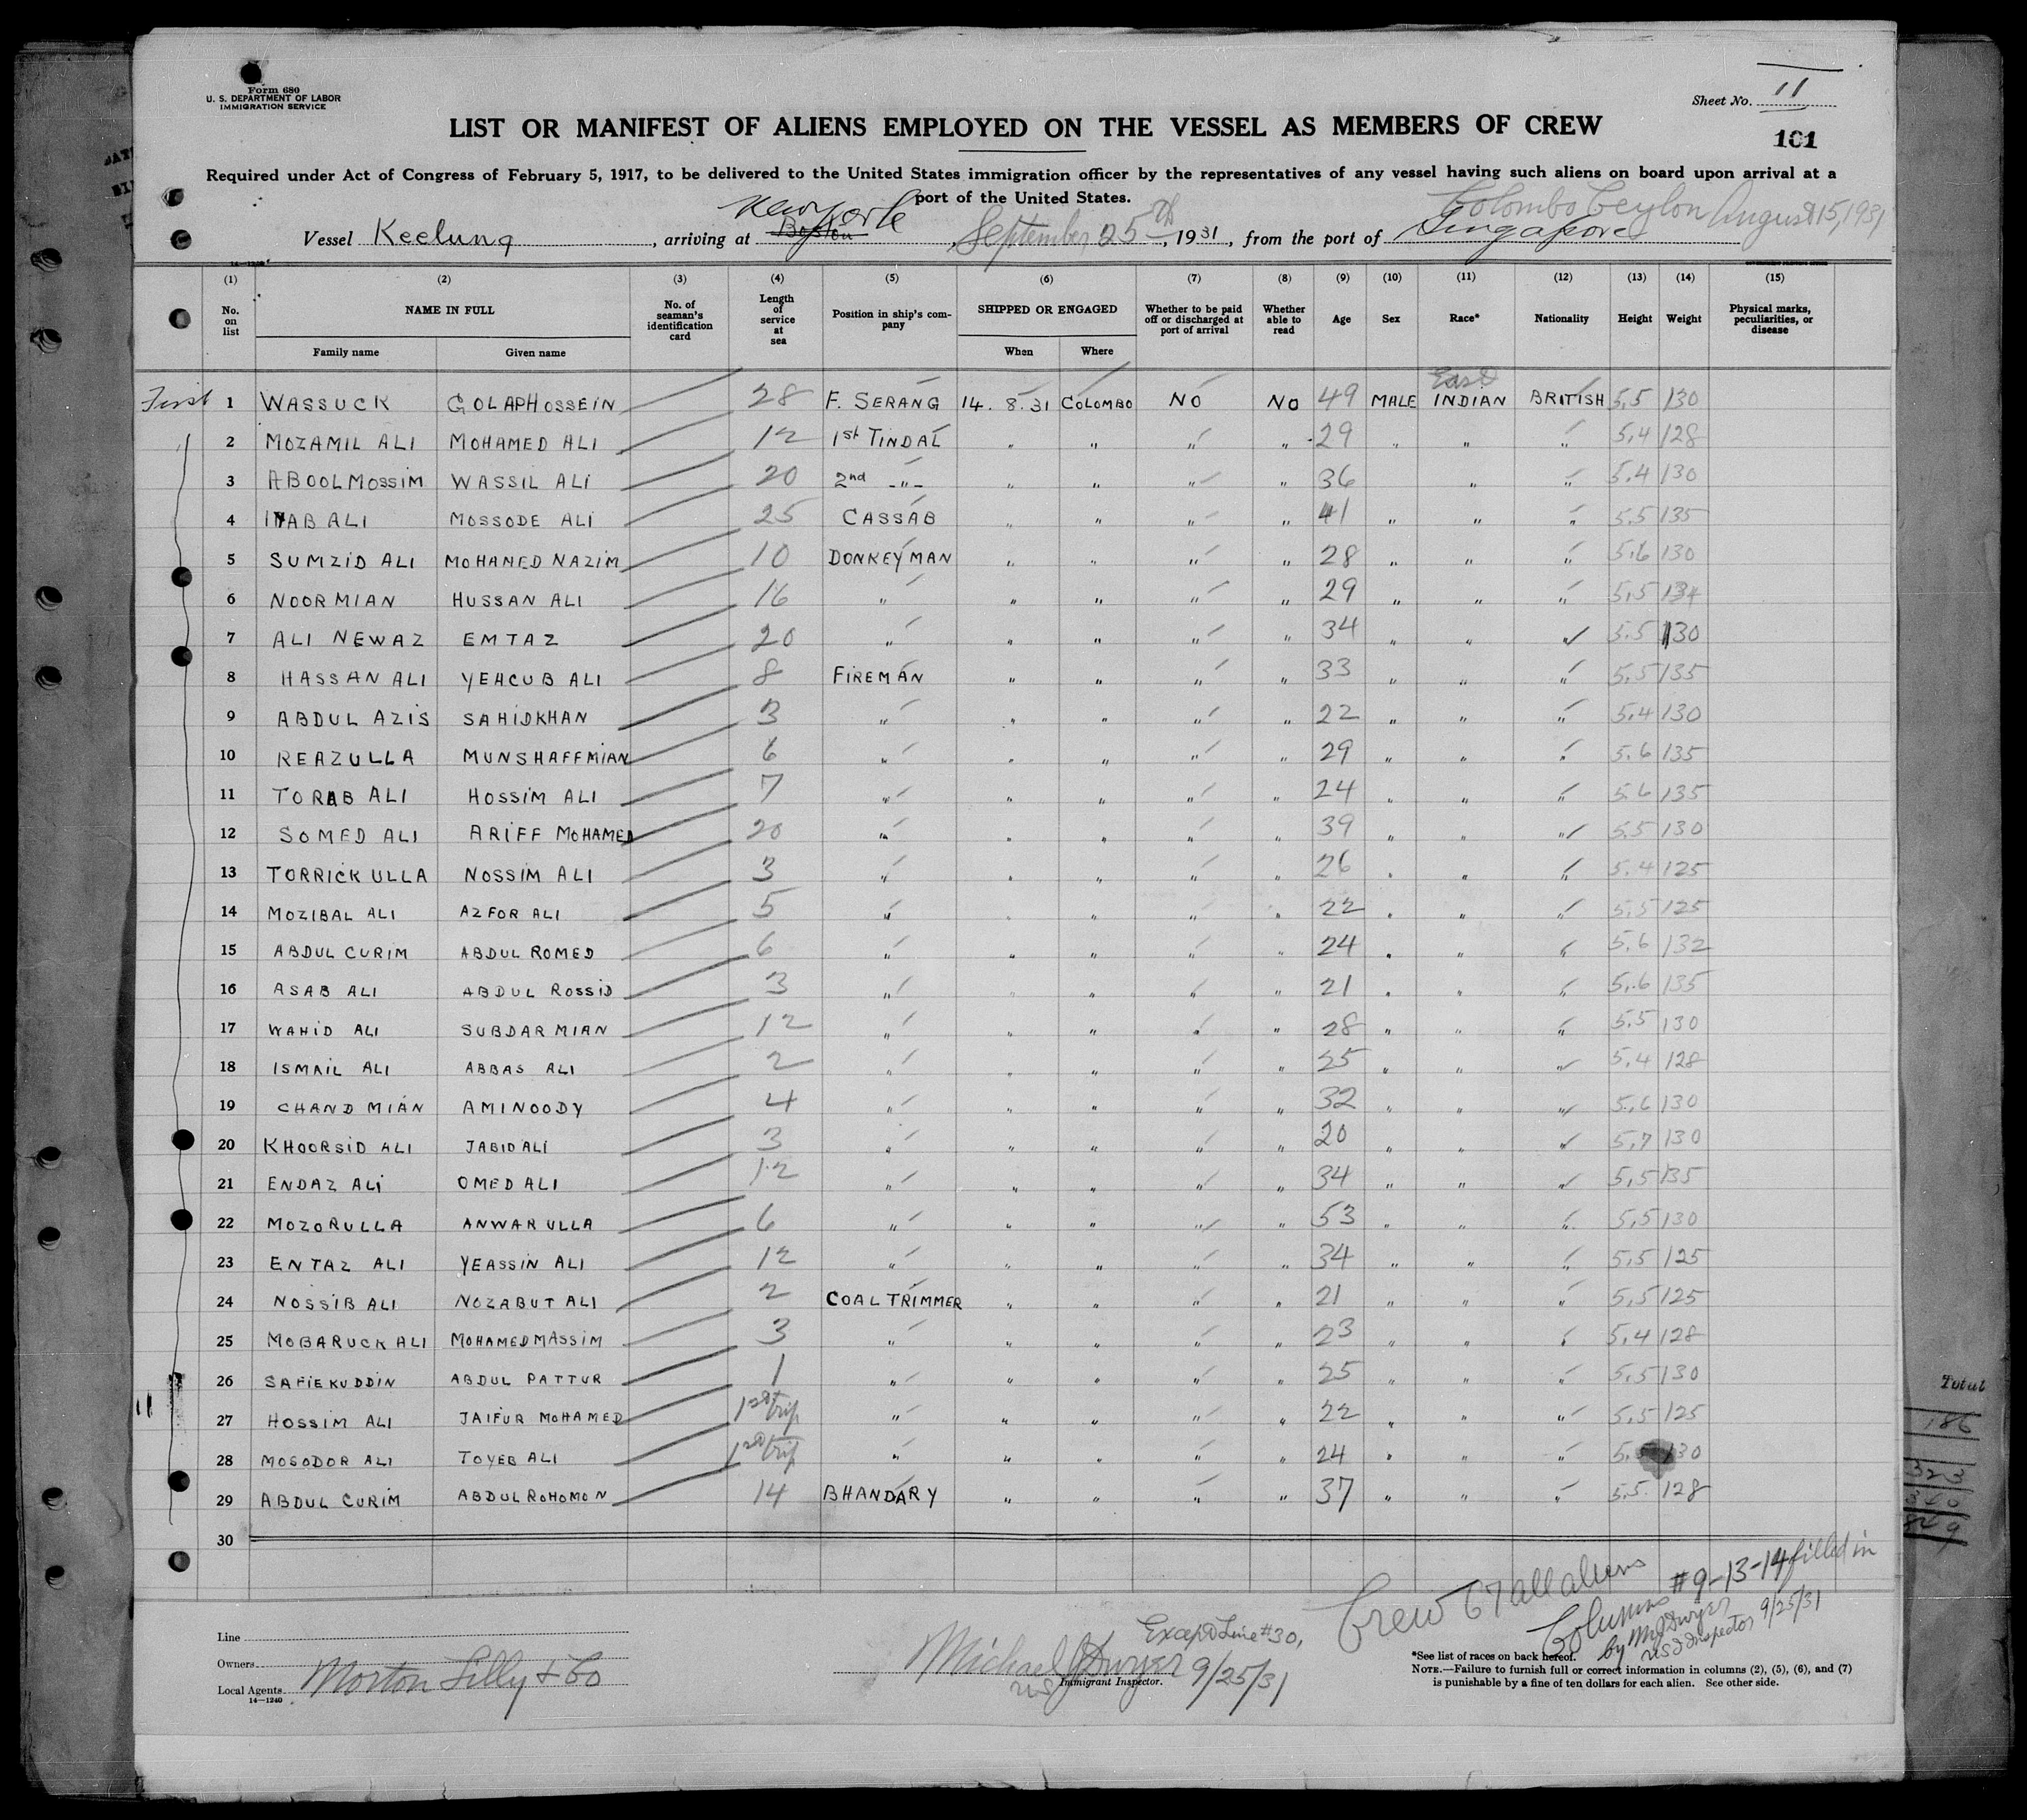 Form 680
U. S. DEPARTMENT OF LABOR
IMMIGRATION SERVICE
Sheet No. 11
101
LIST OR MANIFEST OF ALIENS EMPLOYED ON THE VESSEL AS MEMBERS OF CREW
Required under Act of Congress of February 5, 1917, to be delivered to the United States immigration officer by the representatives of any vessel having such aliens on board upon arrival at a
port of the United States.
New York Colombo Ceylon August 15, 1931
Vessel Keelung, arriving at Boston, September 25th, 1931, from the port of Singapore
(1) (2) (3) (4) (5) (6) (7) (8) (9) (10) (11) (12) (13) (14) (15)
No. on list NAME IN FULL No. of seaman's identification card Length of service at sea Position in ship's company SHIPPED OR ENGAGED Whether to be paid off or discharged at port of arrival Whether able to read Age Sex Race* Nationality Height Weight Physical marks, peculiarities, or disease
Family name Given name When Where
First 1 WASSUCK GOLAPHOSSEIN 28 F. SERANG 14. 8. 31 COLOMBO NO NO 49 MALE East INDIAN BRITISH 5,5 130
2 MOZAMIL ALI MOHAMED ALI 12 1st TINDAL " " " " 29 " " " 5,4 128
3 ABOOLMOSSIM WASSIL ALI 20 2nd -"- " " " " 36 " " 5,4 130
4 ALI MOSSODE ALI 25 CASSAB " " " " 41 " " " 5,5 135
5 SUMZID ALI MOHAMED NAZIM 10 DONKEYMAN " " " " 28 " " " 5,6 130
6 NOORMIAN HUSSAN ALI 16 " " " " " 29 " " " 5,5 134
7 ALI NEWAZ EMTAZ 20 " " " " " 34 " " " 5.5 130
8 HASSAN ALI YEHCUB ALI 8 FIREMAN " " " " 33 " " " 5,5 135
9 ABDUL AZIS SAHIDKHAN 3 " " " " " 22 " " " 5,4 130
10 REAZULLA MUNSHAFFMIAN 6 " " " " " 29 " " " 5,6 135
11 TORAB ALI HOSSIM ALI 7 " " " " " 24 " " " 5.6 135
12 SOMED ALI ARIFF MOHAMED 20 " " " " " 39 " " " 5.5 130
13 TORRICK ULLA NOSSIM ALI 3 " " " " " 26 " " " 5.4 125
14 MOZIBAL ALI AZFOR ALI 5 " " " " " 22 " " " 5,5 125
15 ABDUL CURIM ABDUL ROMED 6 " " " " " 24 " " " 5.6 132
16 ASAB ALI ABDUL ROSSID 3 " " " " " 21 " " " 5,6 135
17 WAHID ALI SUBDAR MIAN 12 " " " " " 28 " " " 5.5 130
18 ISMAIL ALI ABBAS ALI 2 " " " " " 25 " " " 5,4 128
19 CHAND MIAN AMINOODY 4 " " " " " 32 " " " 5,6 130
20 KHOORSID ALI JABID ALI 3 " " " " " 20 " " " 5,7 130
21 ENDAZ ALI OMED ALI 12 " " " " " 34 " " " 5,5 135
22 MOZORULLA ANWAR ULLA 6 " " " " " 53 " " " 5,5 130
23 ENTAZ ALI YEASSIN ALI 12 " " " " " 34 " " " 5,5 125
24 NOSSIB ALI NOZABUT ALI 2 COAL TRIMMER " " " " 21 " " " 5,5 125
25 MOBARUCK ALI MOHAMEDMASSIM 3 " " " " " 23 " " " 5,4 128
26 SAFIEKUDDIN ABDUL PATTUR 1 " " " " " 25 " " " 5,5 130
11
27 HOSSIM ALI JAIFUR MOHAMED 1st trip " " " " " 22 " " " 5,5 125
28 MOSODOR ALI TOYEB ALI 1st trip " " " " " 24 " " " 5,5 130
29 ABDUL CURIM ABDUL ROHOMON 14 BHANDARY " " " " 37 " " " 5.5. 128
30
Total
186
323
Crew 67 all aliens
Columns #9-13-14 filled in
by MJ Dwyer
US Inspector 9/25/31
Except Line #30,
Line
Owners
Local Agents Morton Lilly & Co
14—1240
Michael J Dwyer 9/25/31
US Immigrant Inspector.
*See list of races on back hereof.
NOTE.—Failure to furnish full or correct information in columns (2), (5), (6), and (7)
is punishable by a fine of ten dollars for each alien. See other side.